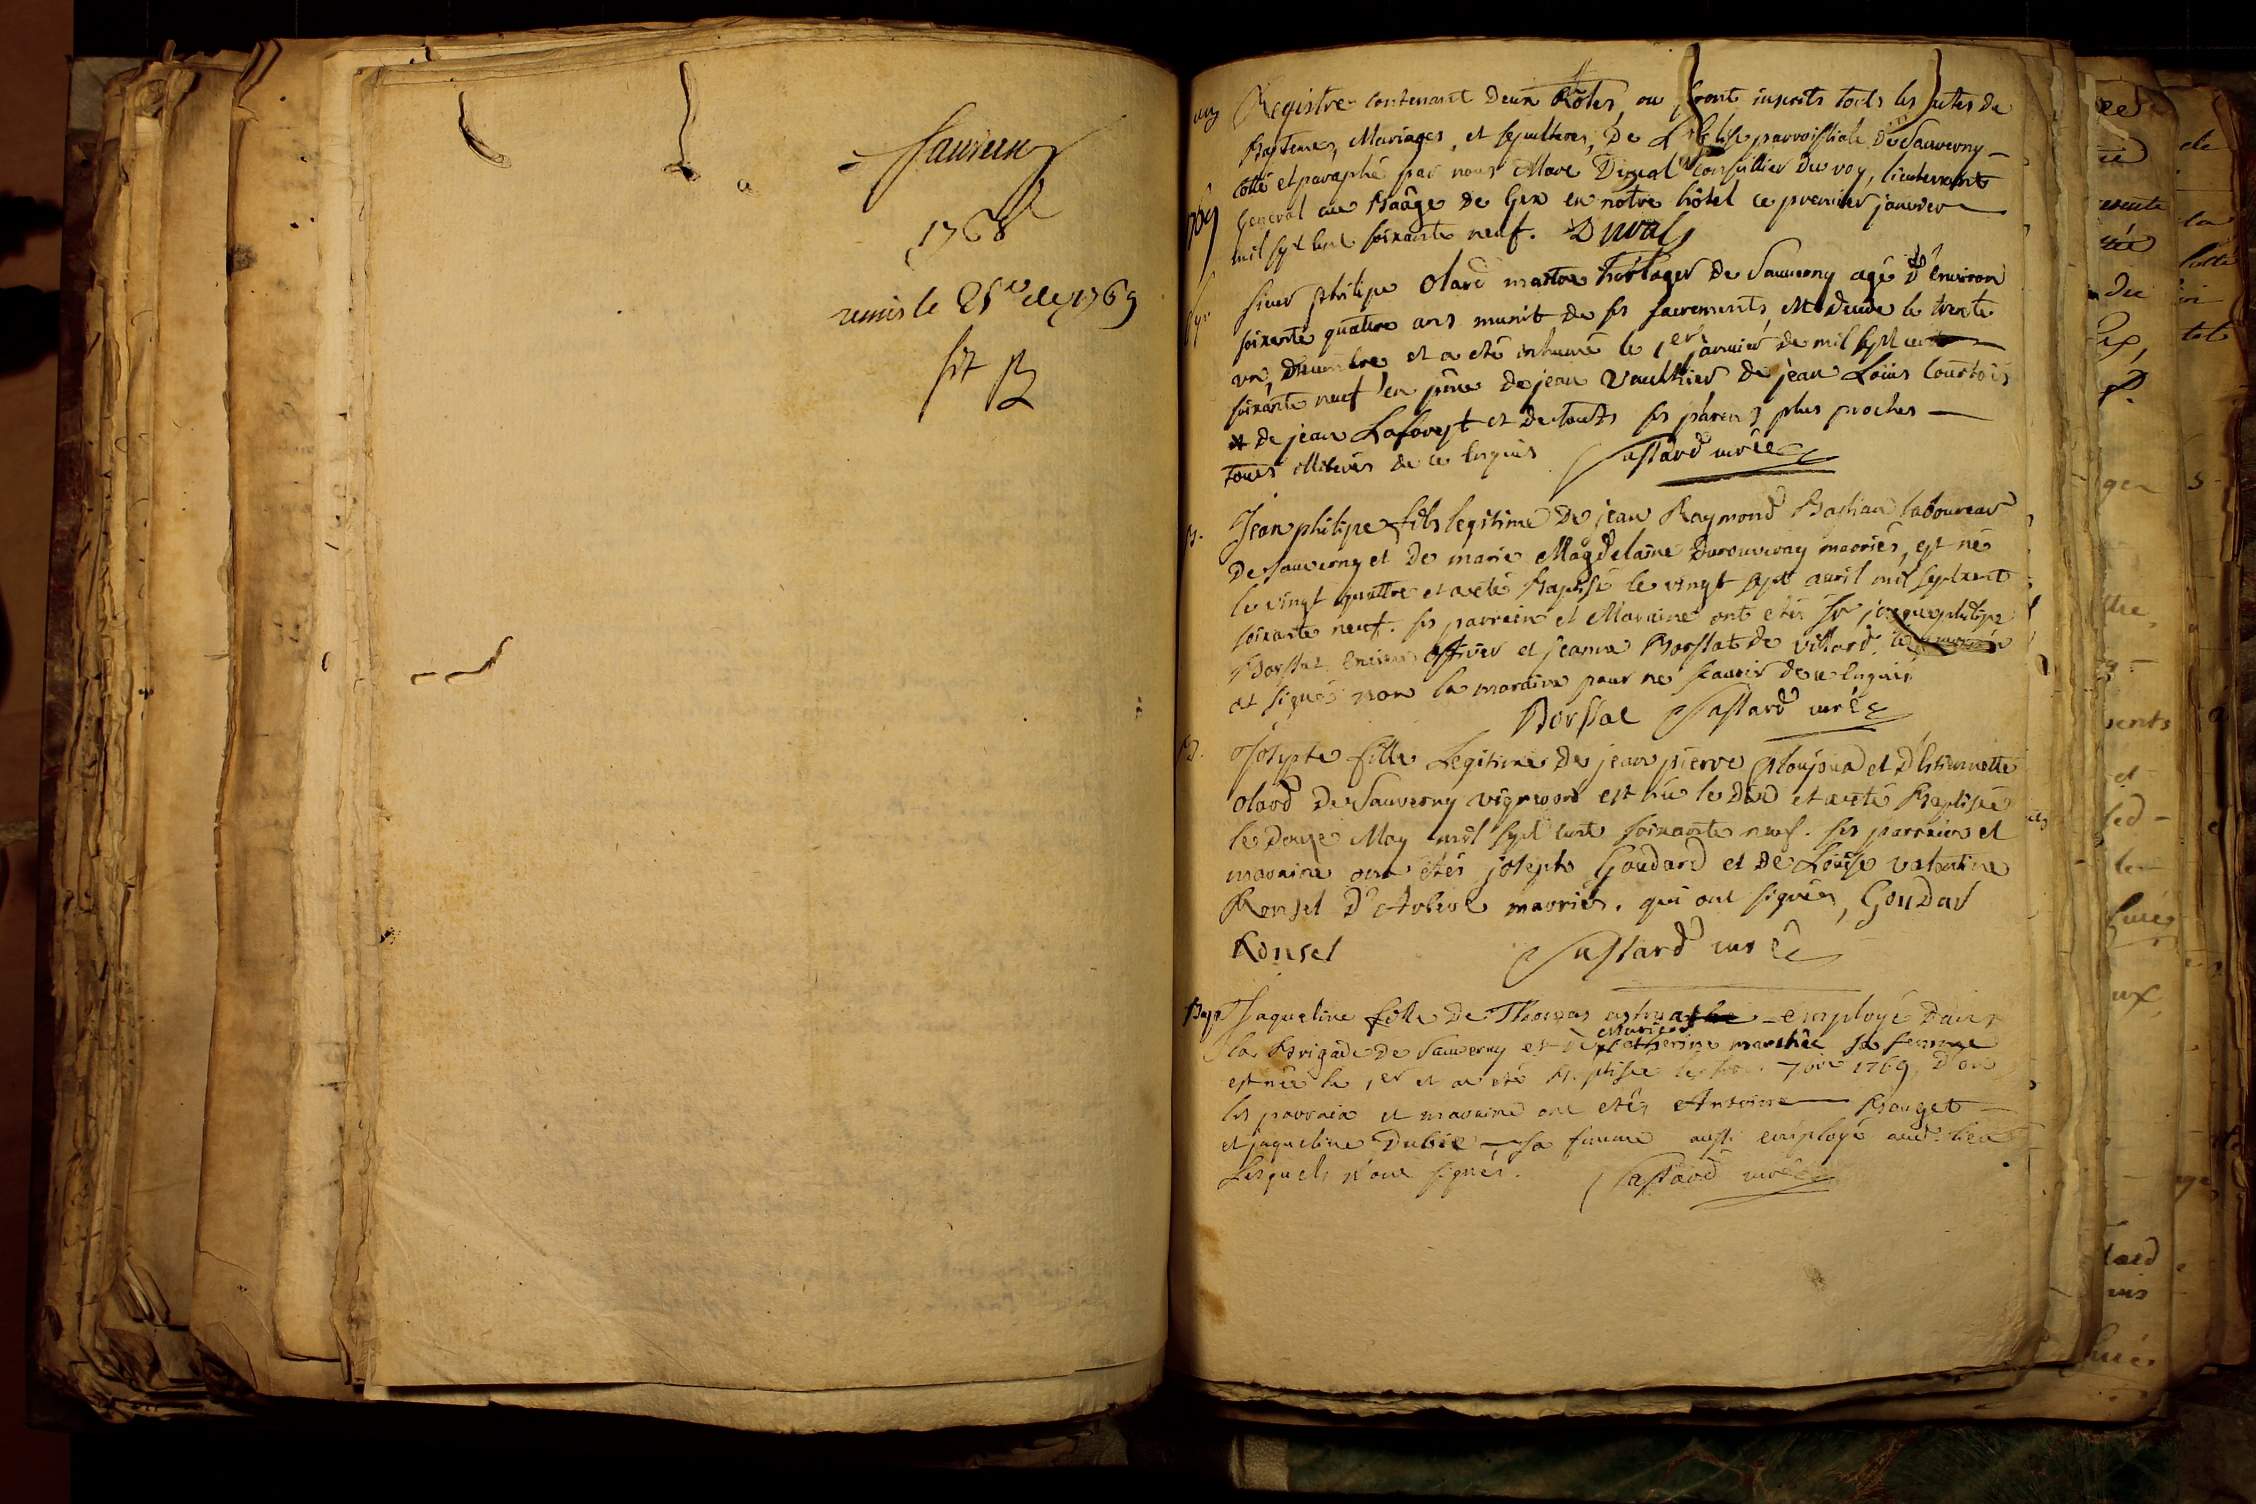 1768
remis le
1769
Registre contenant Deux Rôles, ou seront inscrits touts les actes de
Baptemes, Mariages, et sepultures, De L'Eglise parroissiale De Sauverny
cotté et paraphé par nous Marc Duval Conseillier du roy, lieutenant
General au Baâge de Gex en nôtre hôtel ce premier janvier
mil sept cent soixante neuf. Duval
1769
Sieur philipe Olard maitre horloger de Sauverny agé d'environ
soixante quatre ans munit de ses sacrements, est decedé le trente
un, Decembre, et a eté inhumé le 1er janvier de mil sept cent
soixante neuf en pnce de jean Vaulthier de jean Loüis Courtois
et de jean Laforest et de touts ses parens plus proches
touts illiterés de ce enquis Castard curé
B. Jean philipe fils legitime De jean Raymond Bastian laboureur
De Sauverny et De marie Magdelaine mariés, est né
le vingt quattre et a eté Baptisé le vingt sept avril mil sept cent
soixante neuf. ses parrain et Maraine ont etés Sr jacque philipe
Borssat officier et jeanne Borssat de villard
et signés non la maraine pour ne sçavoir de ce enquis
Borssat Castard curé
B. Josepte fille Legitime De jean pierre et D'Estiennette
Olard De Sauverny vigneron est née le Dix et a eté Baptisée
le Douze May mil sept cent soixante neuf. ses parrain et
maraine ont étés joseph Goudard et De Loüise valentine
Ronsel D' mariés. qui ont signés, Goudar
Ronsel Castard curé
Bap Jaqueline fille De Thomas employé Dans
la Brigade de Sauverny et De Catherine marchée sa femme
est née le 1er et a eté Baptisée le 7bre 1769, D'on
les parrain et maraine ont etés Antoine Bouget
et jaqueline Dubié sa femme aussi employé aud. lieu
Lesquels n'ont signés. Castard curé